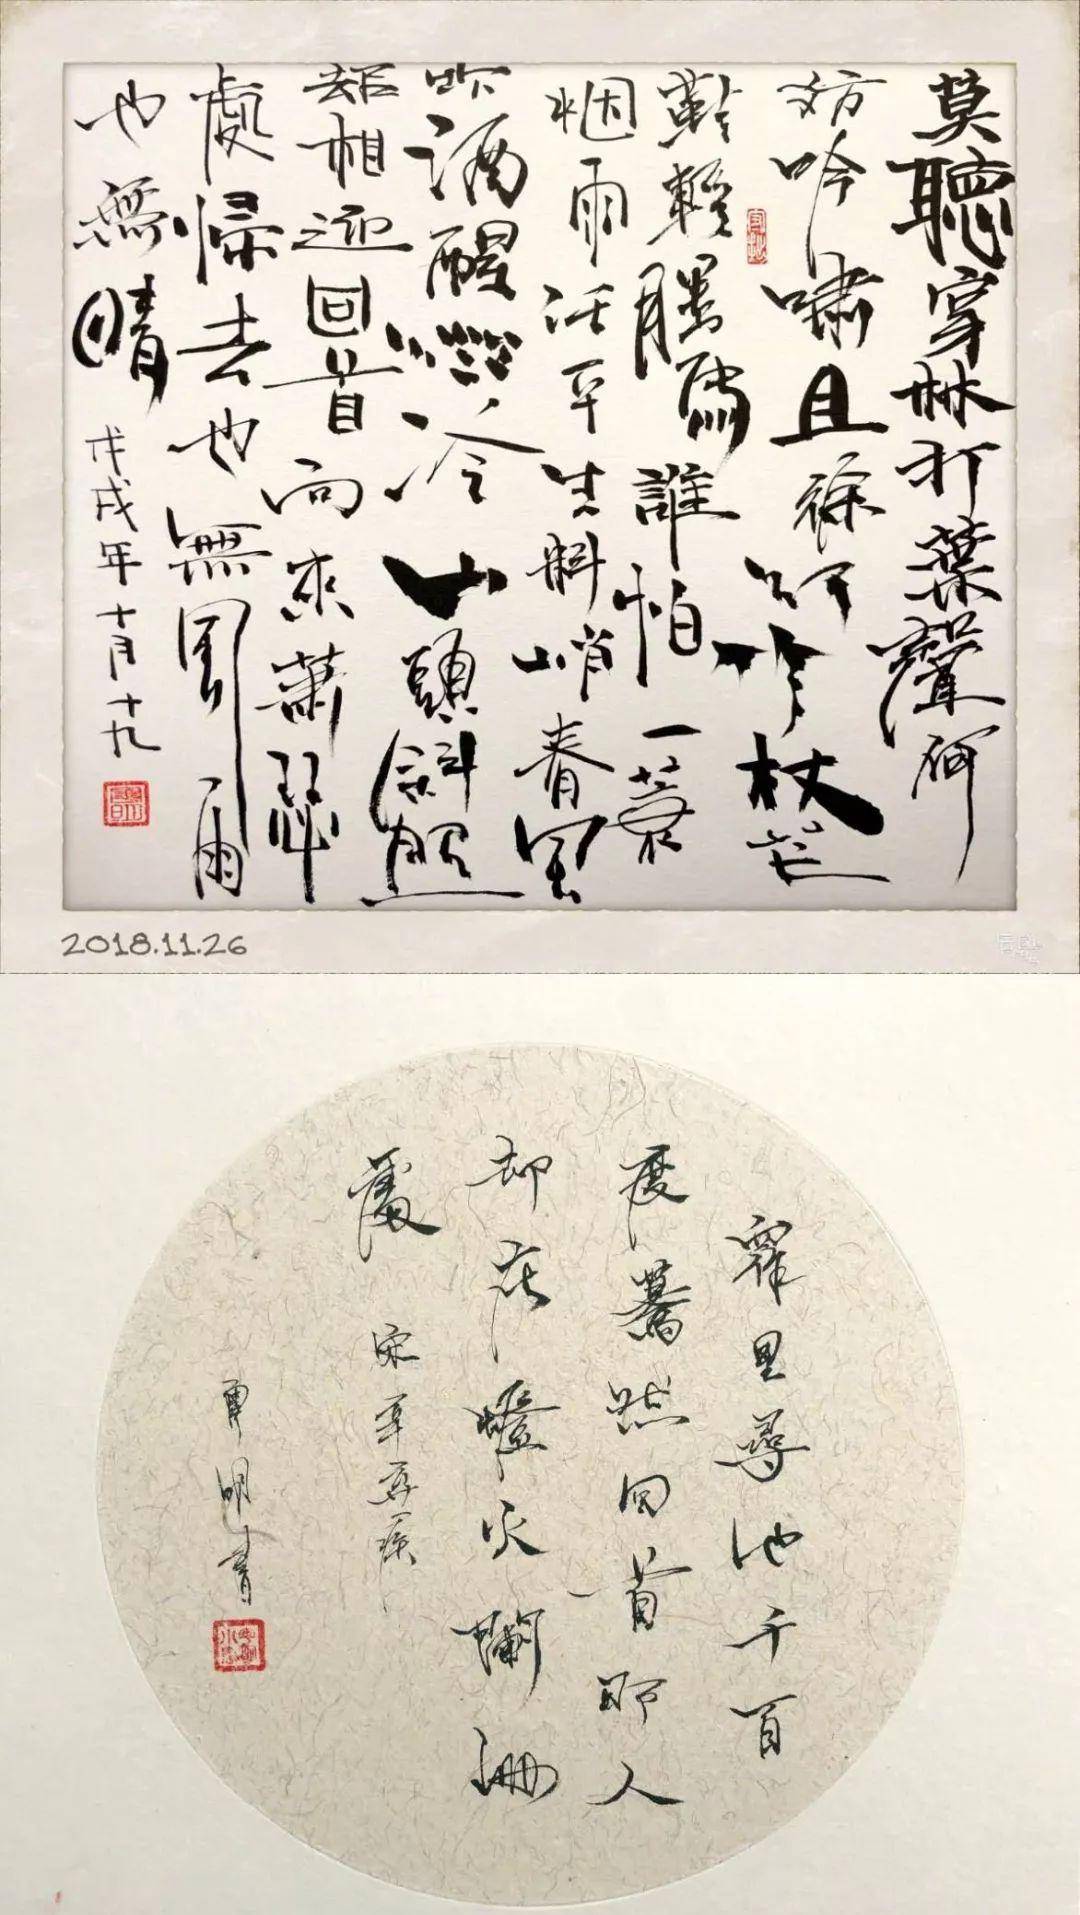 莫聽穿林打葉聲何
妨吟嘯且徐行竹杖芒
鞋輕勝馬誰怕一蓑
烟雨任平生料峭春風
吹酒醒微冷山頭斜照
却相迎回首向來蕭瑟
處歸去也無風雨
也無晴
戊戌年十月十九
2018.11.26
眾里尋他千百
度驀然回首那人
却在燈火闌珊
處
宋辛弃疾
明書